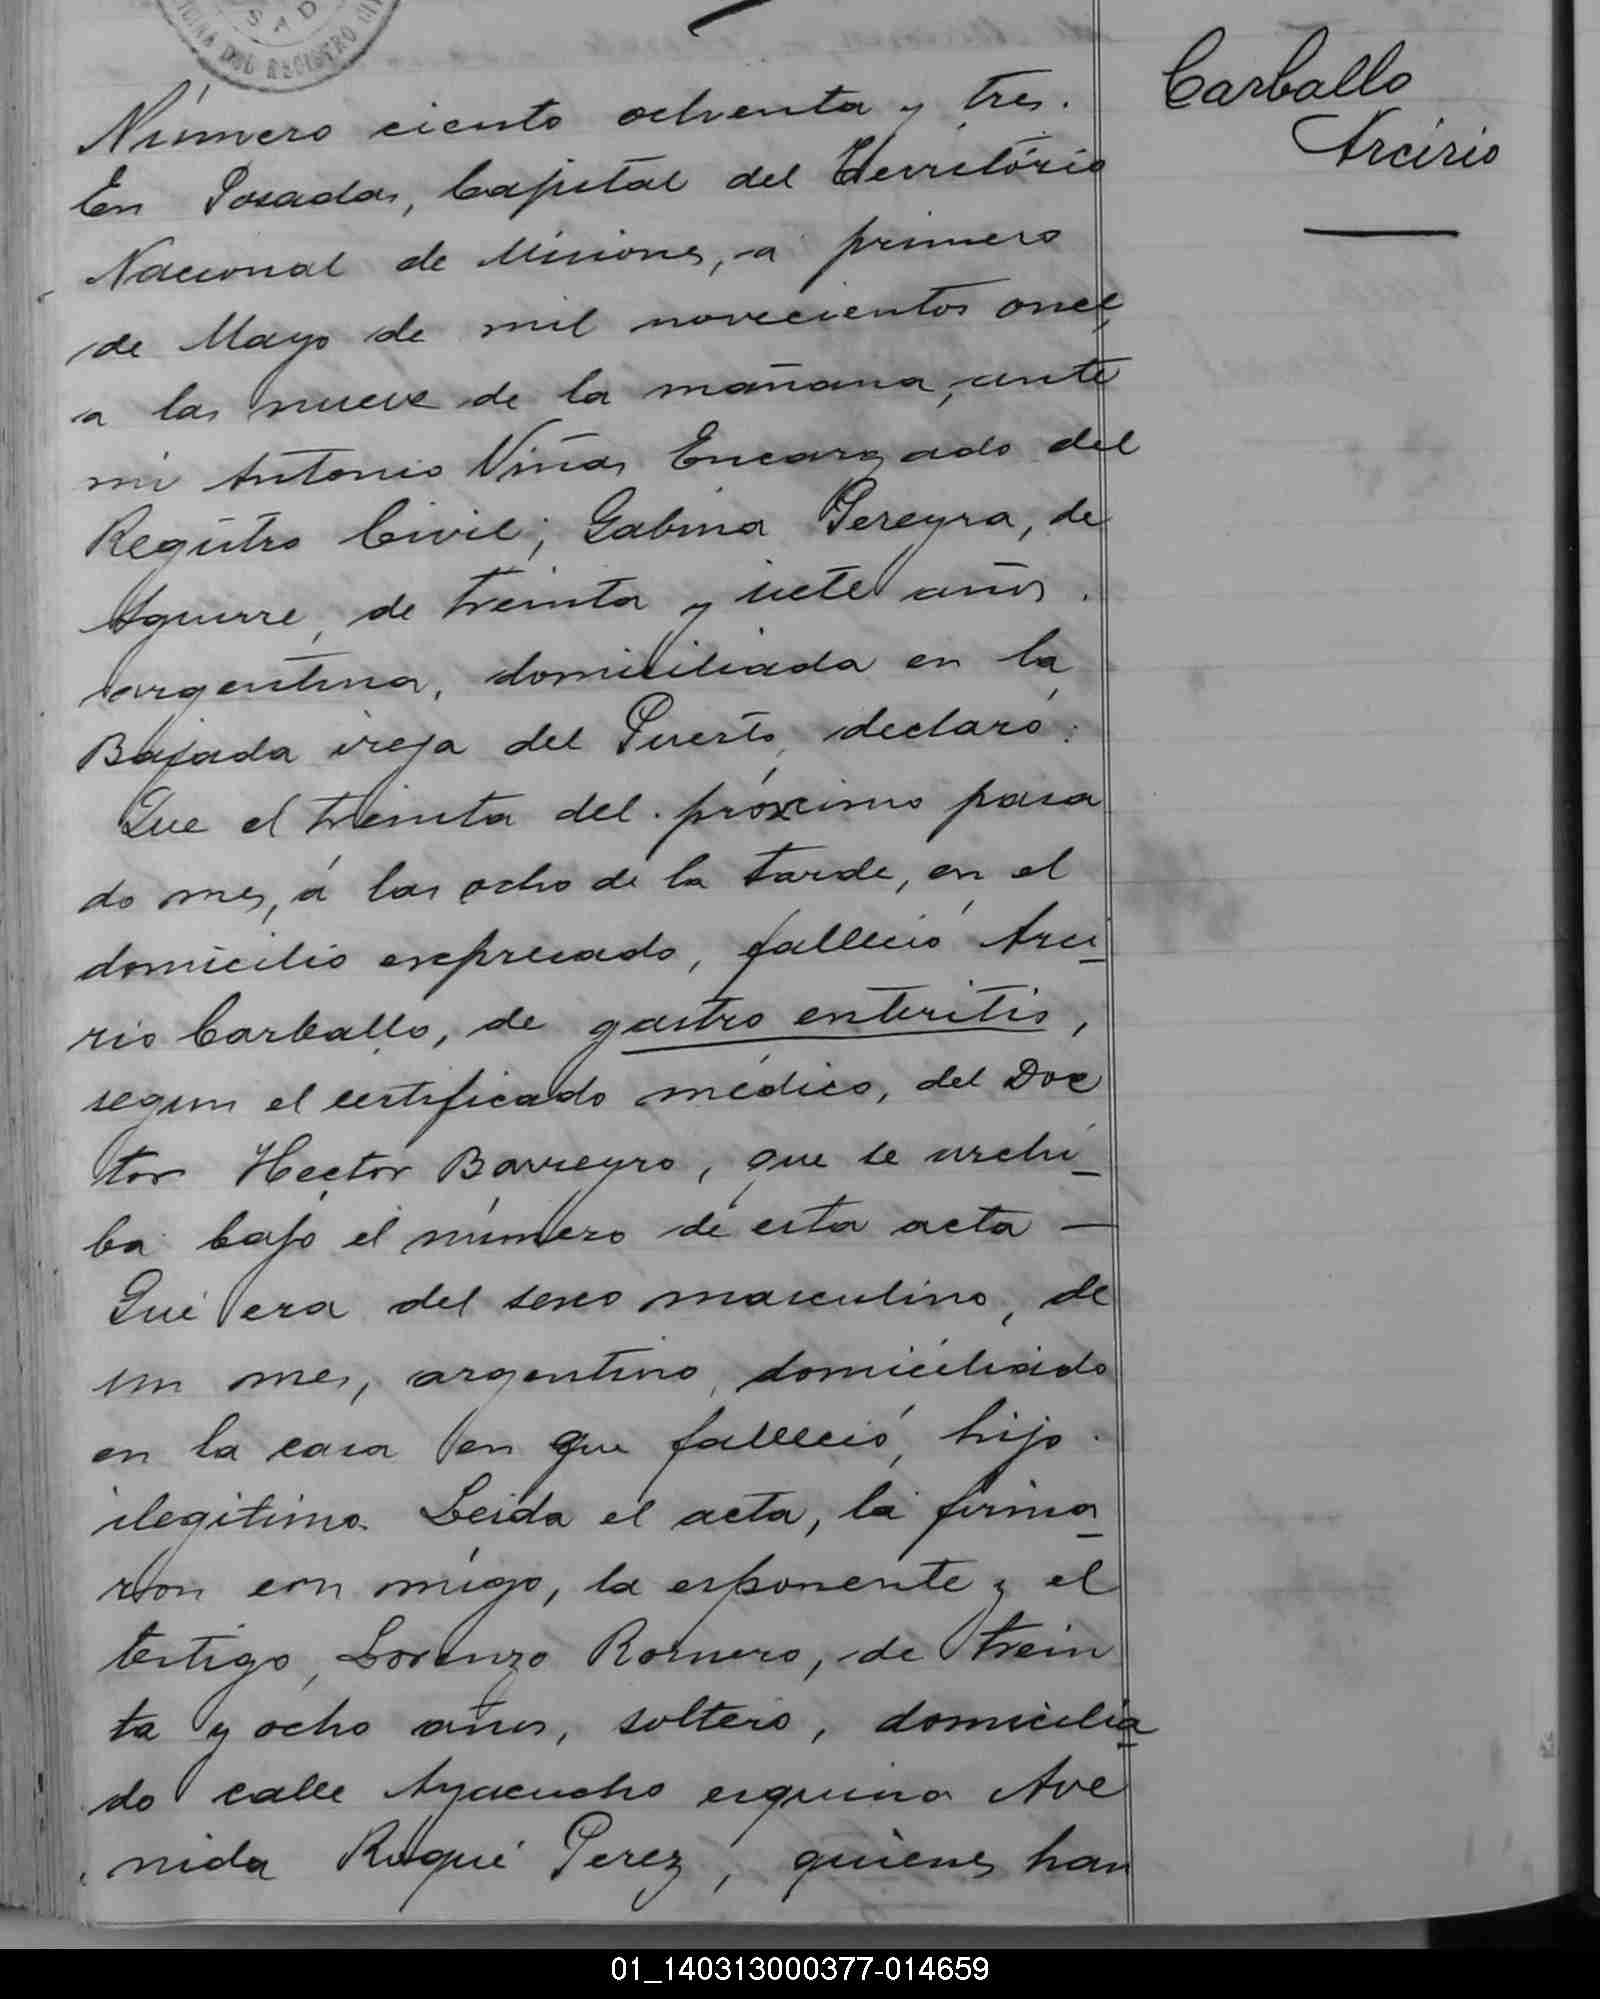 SAD
OFICINA DEL REGISTRO CIVIL
Carballo
Arcirio
Número ciento ochenta y tres.
En Posadas, Capital del Territorio
Nacional de Misiones, a primero
de Mayo de mil novecientos once,
a las nueve de la mañana, ante
mi Antonio Viñas Encargado del
Registro Civil; Gabina Pereyra, de
Aguirre, de treinta y siete años.
argentina, domiciliada en la
Bajada vieja del Puerto, declaró:
Que el treinta del próximo pasa
do mes, á las ocho de la tarde, en el
domicilio expresado, falleció Arci-
rio Carballo, de gastro enteritis,
segun el certificado médico, del Doc
tor Hector Barreyro, que se archi-
ba bajo el número de esta acta —
Que era del sexo masculino, de
un mes, argentino, domiciliado
en la casa en que falleció, hijo
ilegitimo. Leida el acta, la firma-
ron con migo, la esponente y el
testigo, Lorenzo Romero, de trein
ta y ocho años, soltero, domicilia-
do calle Ayacucho esquina Ave
nida Roque Perez, quienes han
01_140313000377-014659